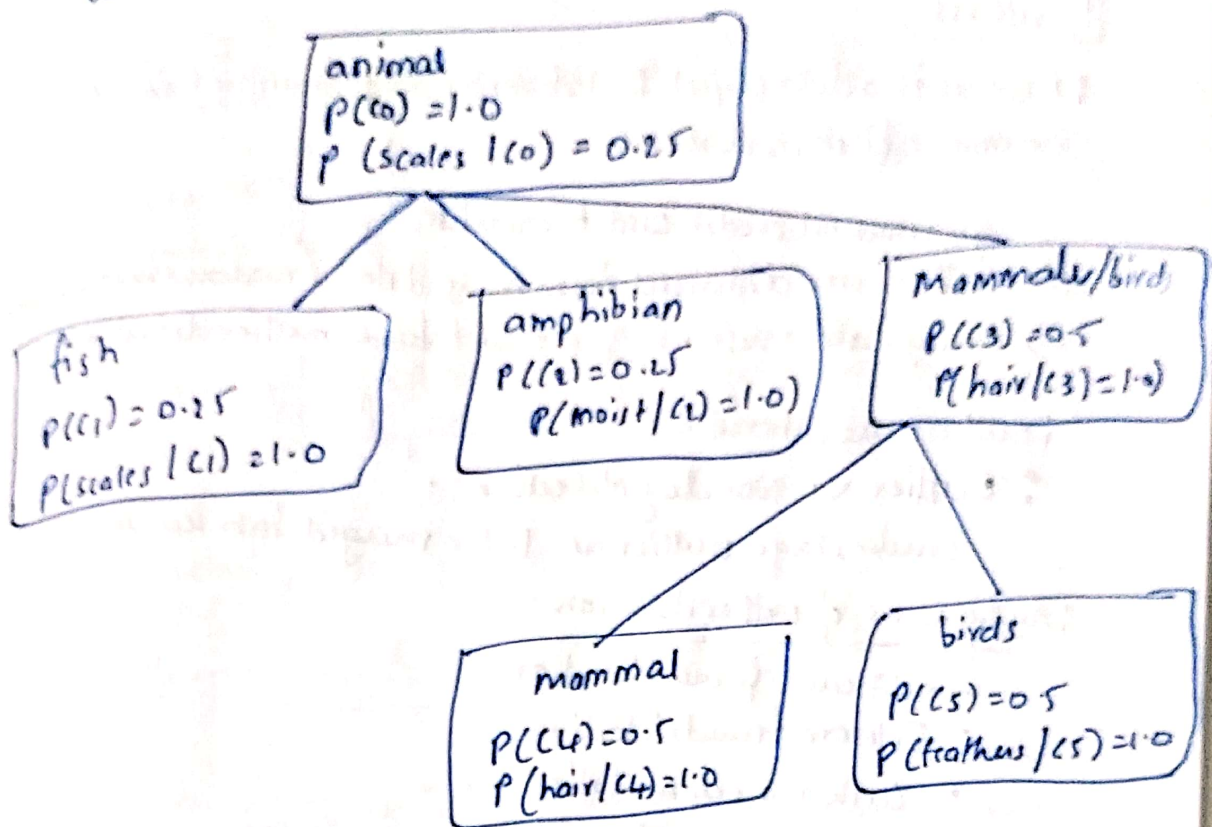 animal
P(C0) = 1.0
P (scales | C0) = 0.25
fish
P(C1) = 0.25
P(scales / C1) = 1.0
amphibian
P(C2) = 0.25
P(moist / C2) = 1.0)
Mammals/birds
P(C3) = 0.5
P(hair / C3) = 1.0)
mammal
P(C4) = 0.5
P(hair / C4) = 1.0
birds
P(C5) = 0.5
P(feathers / C5) = 1.0